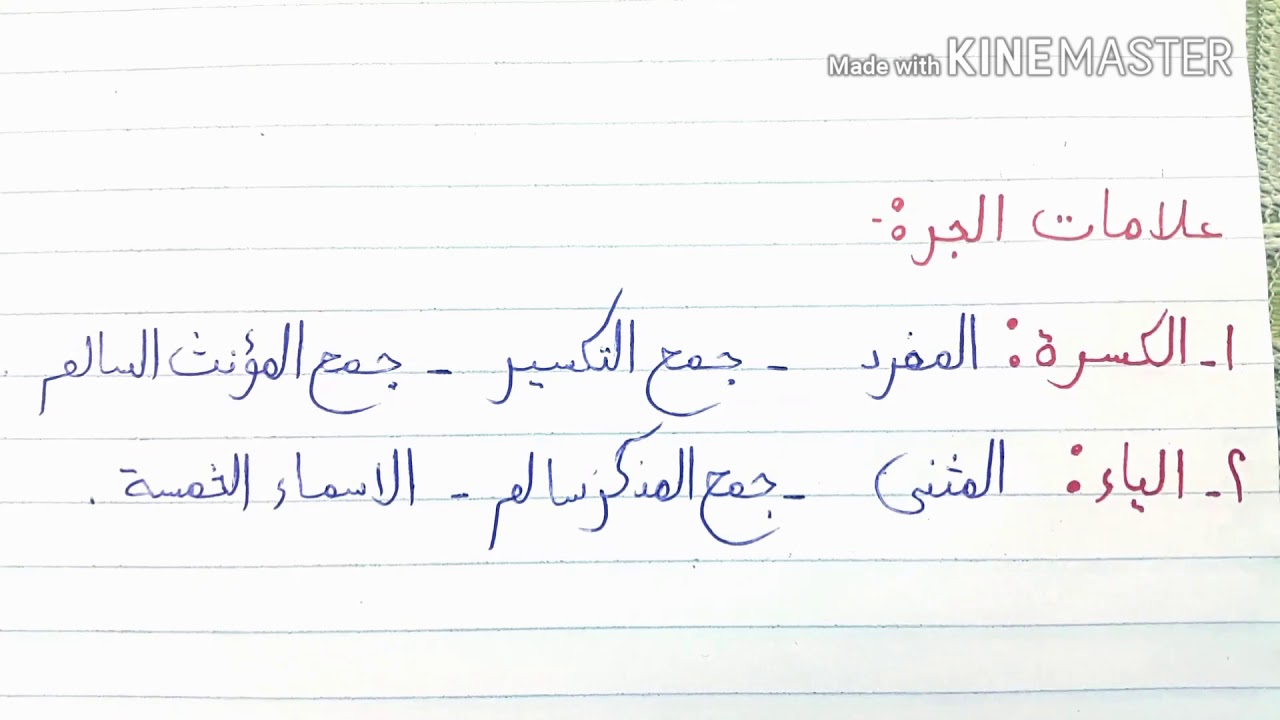 Made with KINEMASTER
علامات الجرة:-
١- الكسرة: المفرد - جمع التكسير - جمع المؤنث السالم .
٢- الياء: المثنى - جمع المذكر سالم - الاسماء الخمسة .